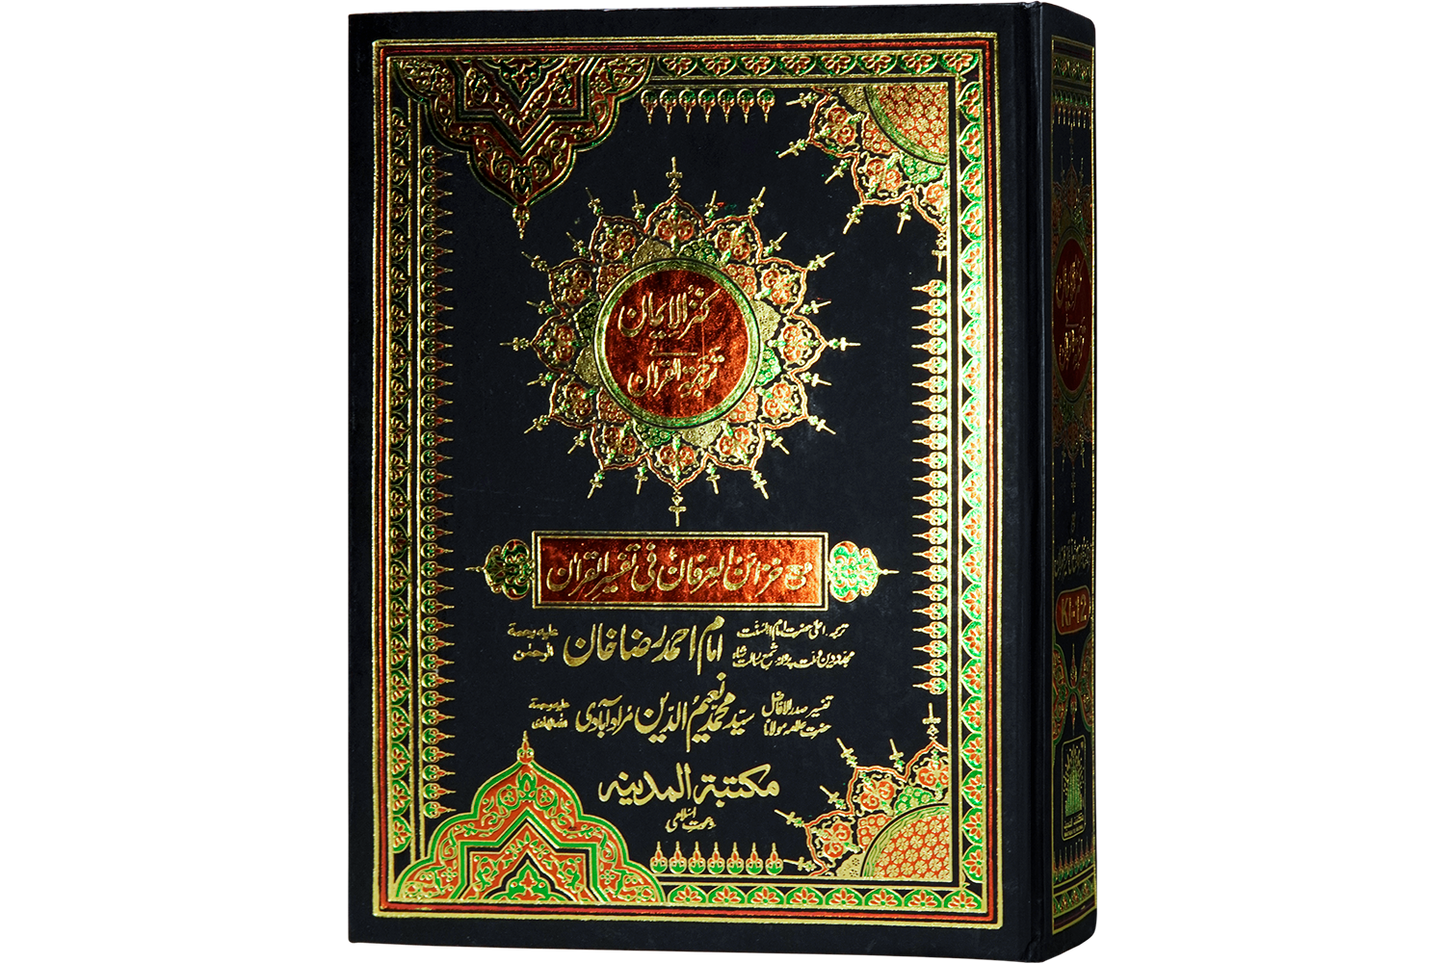 کنزالایمان
ترجمۃ القرآن
مع خزائن العرفان فی تفسیر القرآن
ترجمہ: اعلیٰ حضرت امام اہلسنّت
مجدد دین و ملت پروانہ شمع رسالت شاہ
امام احمد رضا خان علیہ رحمۃ الرحمٰن
تفسیر صدر الافاضل
حضرت علامہ مولانا
سیّد محمد نعیم الدین مراد آبادی
مکتبۃ المدینہ
دعوت اسلامی
KI-12